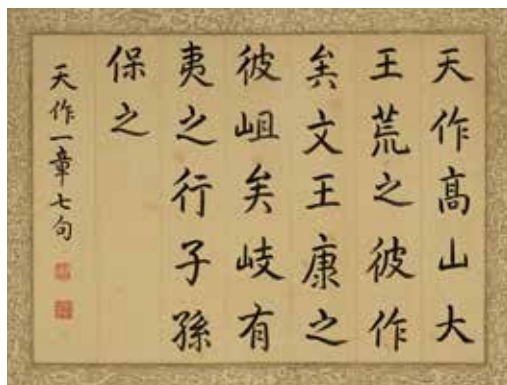 天作高山大
王荒之彼作
矣文王康之
彼岨矣岐有
夷之行子孫
保之
天作一章七句